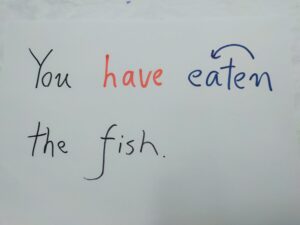 You have eaten
the fish.